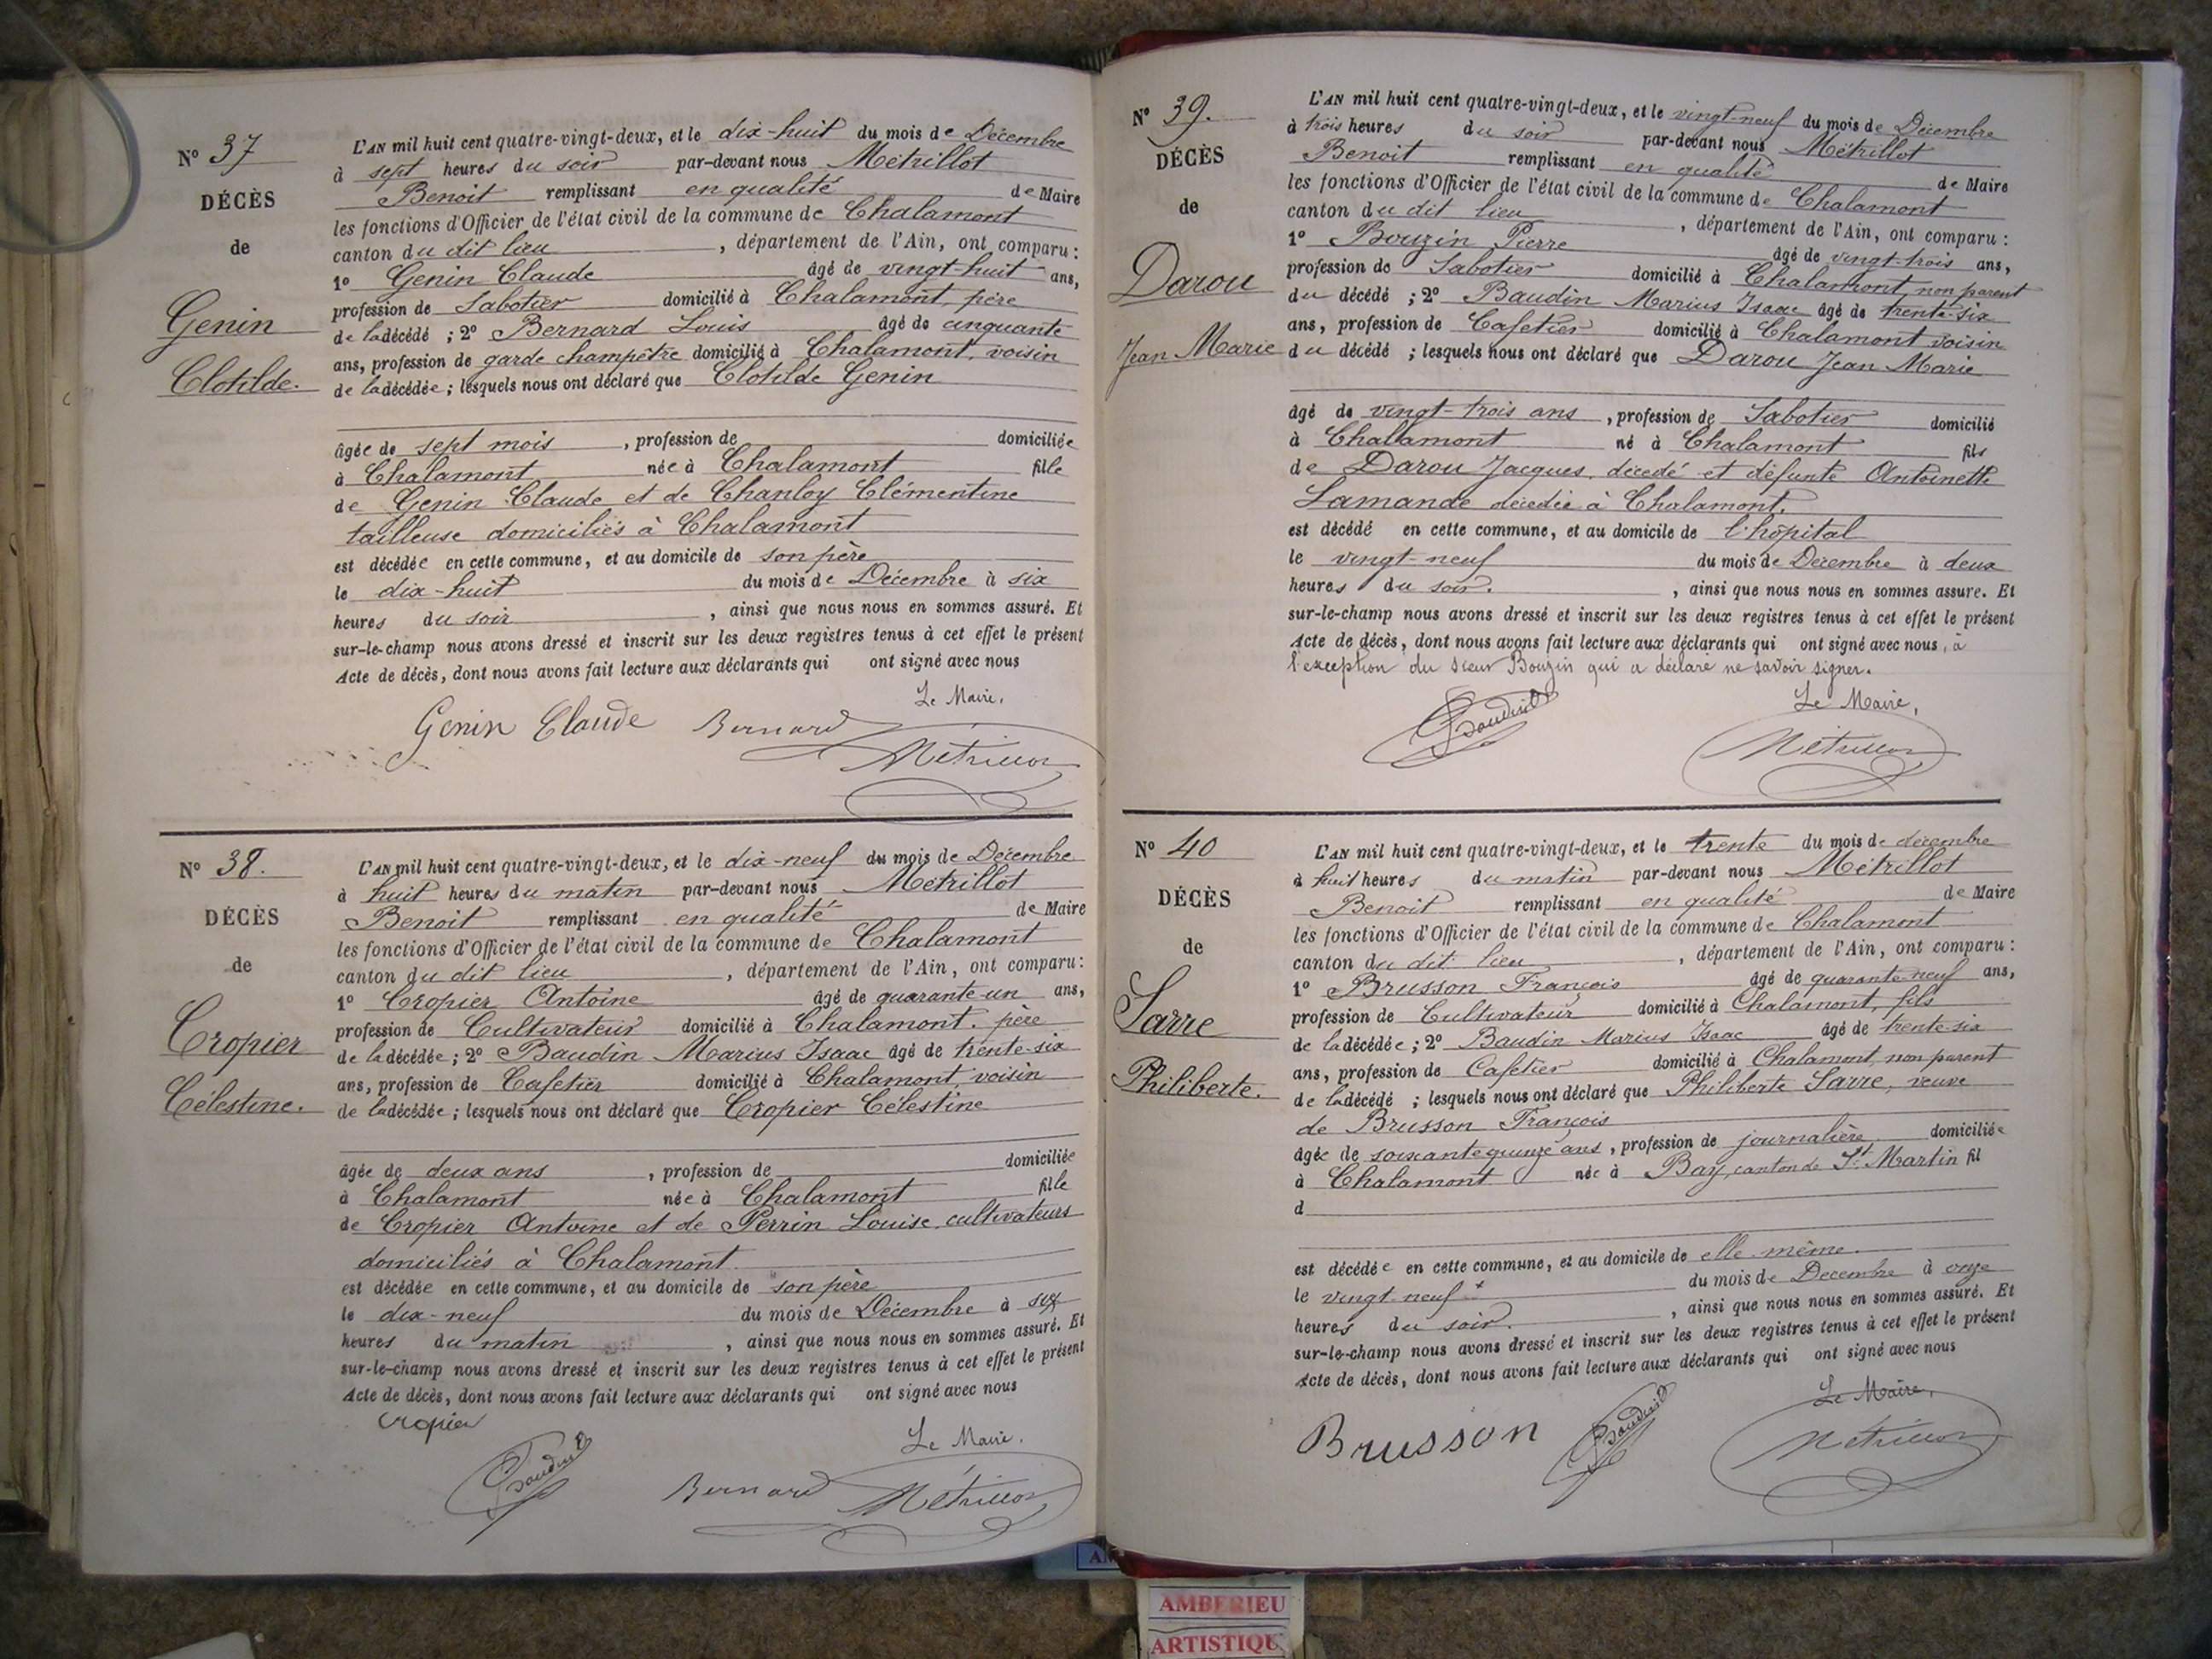 N° 37
DÉCÈS
de
Genin
Clotilde.
L'AN mil huit cent quatre-vingt-deux, et le dix-huit du mois de Décembre
à sept heures du soir par-devant nous Métrillot
Benoit remplissant en qualité de Maire
les fonctions d'Officier de l'état civil de la commune de Chalamont
canton du dit lieu, département de l'Ain, ont comparu :
1° Genin Claude âgé de vingt-huit ans,
profession de Sabotier domicilié à Chalamont, père
de la décédé ; 2° Bernard Louis âgé de cinquante
ans, profession de garde champêtre domicilié à Chalamont, voisin
de la décédée ; lesquels nous ont déclaré que Clotilde Genin
âgée de sept mois, profession de domiciliée
à Chalamont née à Chalamont fille
de Genin Claude et de Chanloy Clémentine
tailleuse domiciliés à Chalamont
est décédée en cette commune, et au domicile de son père
le dix-huit du mois de Décembre à six
heures du soir, ainsi que nous nous en sommes assuré. Et
sur-le-champ nous avons dressé et inscrit sur les deux registres tenus à cet effet le présent
Acte de décès, dont nous avons fait lecture aux déclarants qui ont signé avec nous
Le Maire,
Genin Claude Bernard Métrillot
N° 38.
DÉCÈS
de
Cropier
Célestine.
L'AN mil huit cent quatre-vingt-deux, et le dix-neuf du mois de Décembre
à huit heures du matin par-devant nous Métrillot
Benoit remplissant en qualité de Maire
les fonctions d'Officier de l'état civil de la commune de Chalamont
canton du dit lieu, département de l'Ain, ont comparu :
1° Cropier Antoine âgé de quarante-un ans,
profession de Cultivateur domicilié à Chalamont. père
de la décédée ; 2° Baudin Marius Isaac âgé de trente-six
ans, profession de Cafetier domicilié à Chalamont, voisin
de la décédée ; lesquels nous ont déclaré que Cropier Célestine
âgée de deux ans, profession de domiciliée
à Chalamont née à Chalamont fille
de Cropier Antoine et de Perrin Louise, cultivateurs
domiciliés à Chalamont
est décédée en cette commune, et au domicile de son père
le dix-neuf du mois de Décembre à six
heures du matin, ainsi que nous nous en sommes assuré. Et
sur-le-champ nous avons dressé et inscrit sur les deux registres tenus à cet effet le présent
Acte de décès, dont nous avons fait lecture aux déclarants qui ont signé avec nous
Cropier
Le Maire.
Baudin Bernard Métrillot
N° 39.
DÉCÈS
de
Darou
Jean Marie
L'AN mil huit cent quatre-vingt-deux, et le vingt-neuf du mois de Décembre
à trois heures du soir par-devant nous Métrillot
Benoit remplissant en qualité de Maire
les fonctions d'Officier de l'état civil de la commune de Chalamont
canton du dit lieu, département de l'Ain, ont comparu :
1° Bouzin Pierre âgé de vingt-trois ans,
profession de Sabotier domicilié à Chalamont, non parent
du décédé ; 2° Baudin Marius Isaac âgé de trente-six
ans, profession de Cafetier domicilié à Chalamont voisin
du décédé ; lesquels nous ont déclaré que Darou Jean Marie
âgé de vingt-trois ans, profession de Sabotier domicilié
à Challamont né à Chalamont fils
de Darou Jacques, décédé et défunte Antoinette
Lamande décédée à Chalamont.
est décédé en cette commune, et au domicile de l'hôpital
le vingt-neuf du mois de Décembre à deux
heures du soir., ainsi que nous nous en sommes assure. Et
sur-le-champ nous avons dressé et inscrit sur les deux registres tenus à cet effet le présent
Acte de décès, dont nous avons fait lecture aux déclarants qui ont signé avec nous, à
l'exception du Sieur Bouzin qui a déclaré ne savoir signer.
Le Maire,
Baudin Métrillot
N° 40
DÉCÈS
de
Sarre
Philiberte.
L'AN mil huit cent quatre-vingt-deux, et le trente du mois de décembre
à huit heures du matin par-devant nous Métrillot
Benoit remplissant en qualité de Maire
les fonctions d'Officier de l'état civil de la commune de Chalamont
canton du dit lieu, département de l'Ain, ont comparu :
1° Brusson François âgé de quarante-neuf ans,
profession de Cultivateur domicilié à Chalamont, fils
de la décédée ; 2° Baudin Marius Isaac âgé de trente-six
ans, profession de Cafetier domicilié à Chalamont, non parent
de la décédé ; lesquels nous ont déclaré que Philiberte Sarre, veuve
de Brusson François
âgée de soixante quinze ans, profession de journalière domiciliée
à Chalamont née à Bay, canton de St. Martin fil
d
est décédée en cette commune, et au domicile de elle-même.
le vingt-neuf du mois de Decembre à onze
heures du soir., ainsi que nous nous en sommes assuré. Et
sur-le-champ nous avons dressé et inscrit sur les deux registres tenus à cet effet le présent
Acte de décès, dont nous avons fait lecture aux déclarants qui ont signé avec nous
Le Maire,
Brusson Baudin Métrillot
AMBERIEU
ARTISTIQU